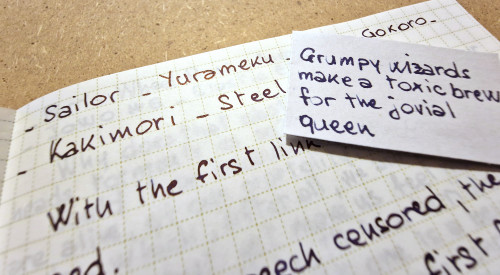 Gokoro-
- Sailor - Yurameku -
- Kakimori - Steel
With the first
censored, the
first
Grumpy wizards
make a toxic brew
for the jovial
queen